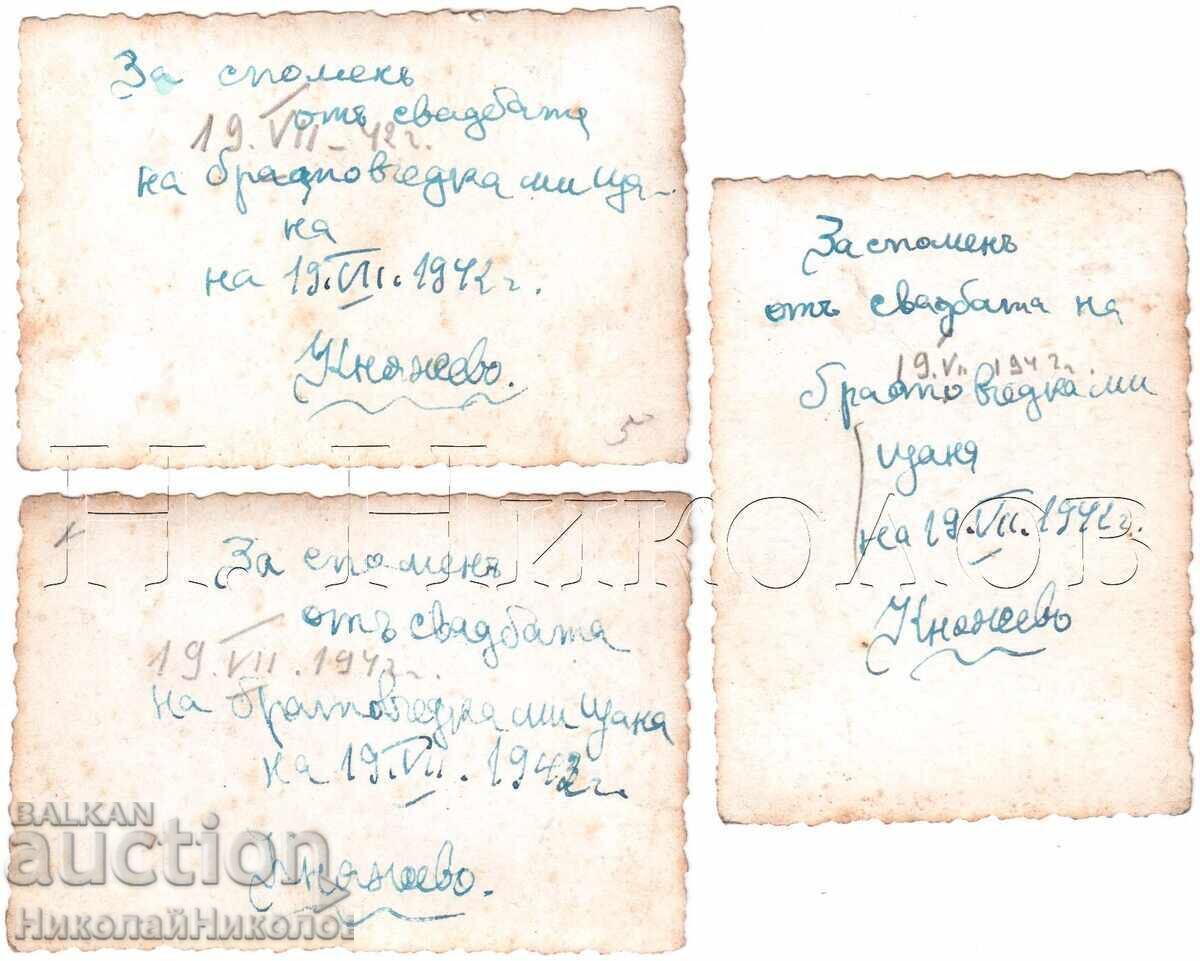 За споменъ
отъ свадбата
19.VII-42г.
на братовчедка ми Ца-
на
на 19.VII.1942г.
Княжево.
5
За споменъ
отъ свадбата на
19.VII 1942г.
братовчедка ми
Цаня
на 19.VII.1942г.
Княжево
1
За споменъ
отъ свадбата
19.VII.1942г.
на братовчедка ми Цана
на 19.VII.1942г.
Княжево.
Н. Николов
BALKAN
auction
НиколайНиколов